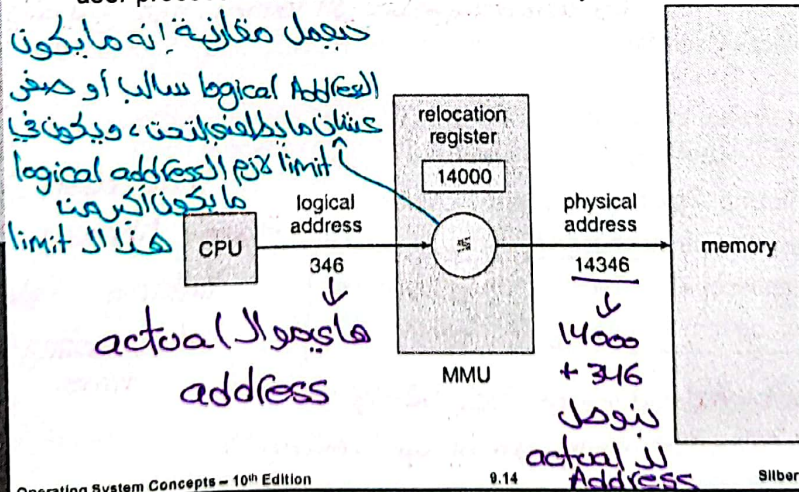 user proces
حيعمل مقارنة إنه ما يكون
الـ logical Address سالب أو صفر
عشان ما يطلعني لتحت، ويكون في
limit لازم الـ logical address
ما يكون أكبر من
هذا الـ limit
relocation
register
14000
logical
address
physical
address
CPU
memory
346
14346
↓
هاي هو الـ actual
address
MMU
↓
14000
+ 346
بنوصل
لل actual
Address
Operating System Concepts – 10th Edition
9.14
Silber